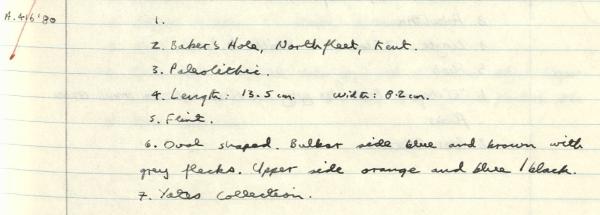 A.416'80
1.
2. Baker's Hole, Northfleet, Kent.
3. Paleolithic.
4. Length: 13.5 cm. Width: 8.2 cm.
5. Flint.
6. Oval shaped. Bulbar side blue and brown with
grey flecks. Upper side orange and blue / black.
7. Yates Collection.